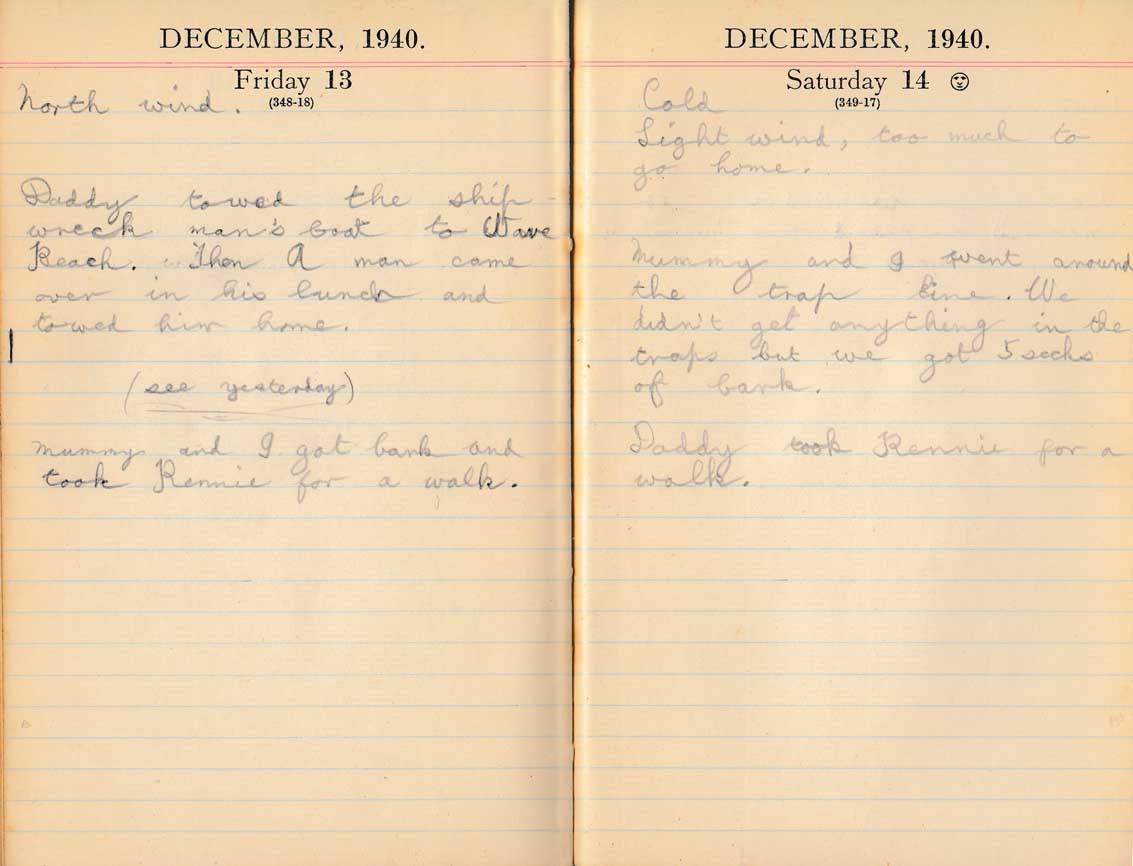 DECEMBER, 1940.
Friday 13
(348-18)
North wind.
Daddy towed the ship-
wreck man's boat to Wave
Reach. Then A man came
over in his lunch and
towed him home.
(see yesterday)
Mummy and I got bark and
took Rennie for a walk.
DECEMBER, 1940.
Saturday 14
(349-17)
Cold
Light wind, too much to
go home.
Mummy and I went around
the trap line. We
didn't get anything in the
traps but we got 5 sacks
of bark.
Daddy took Rennie for a
walk.